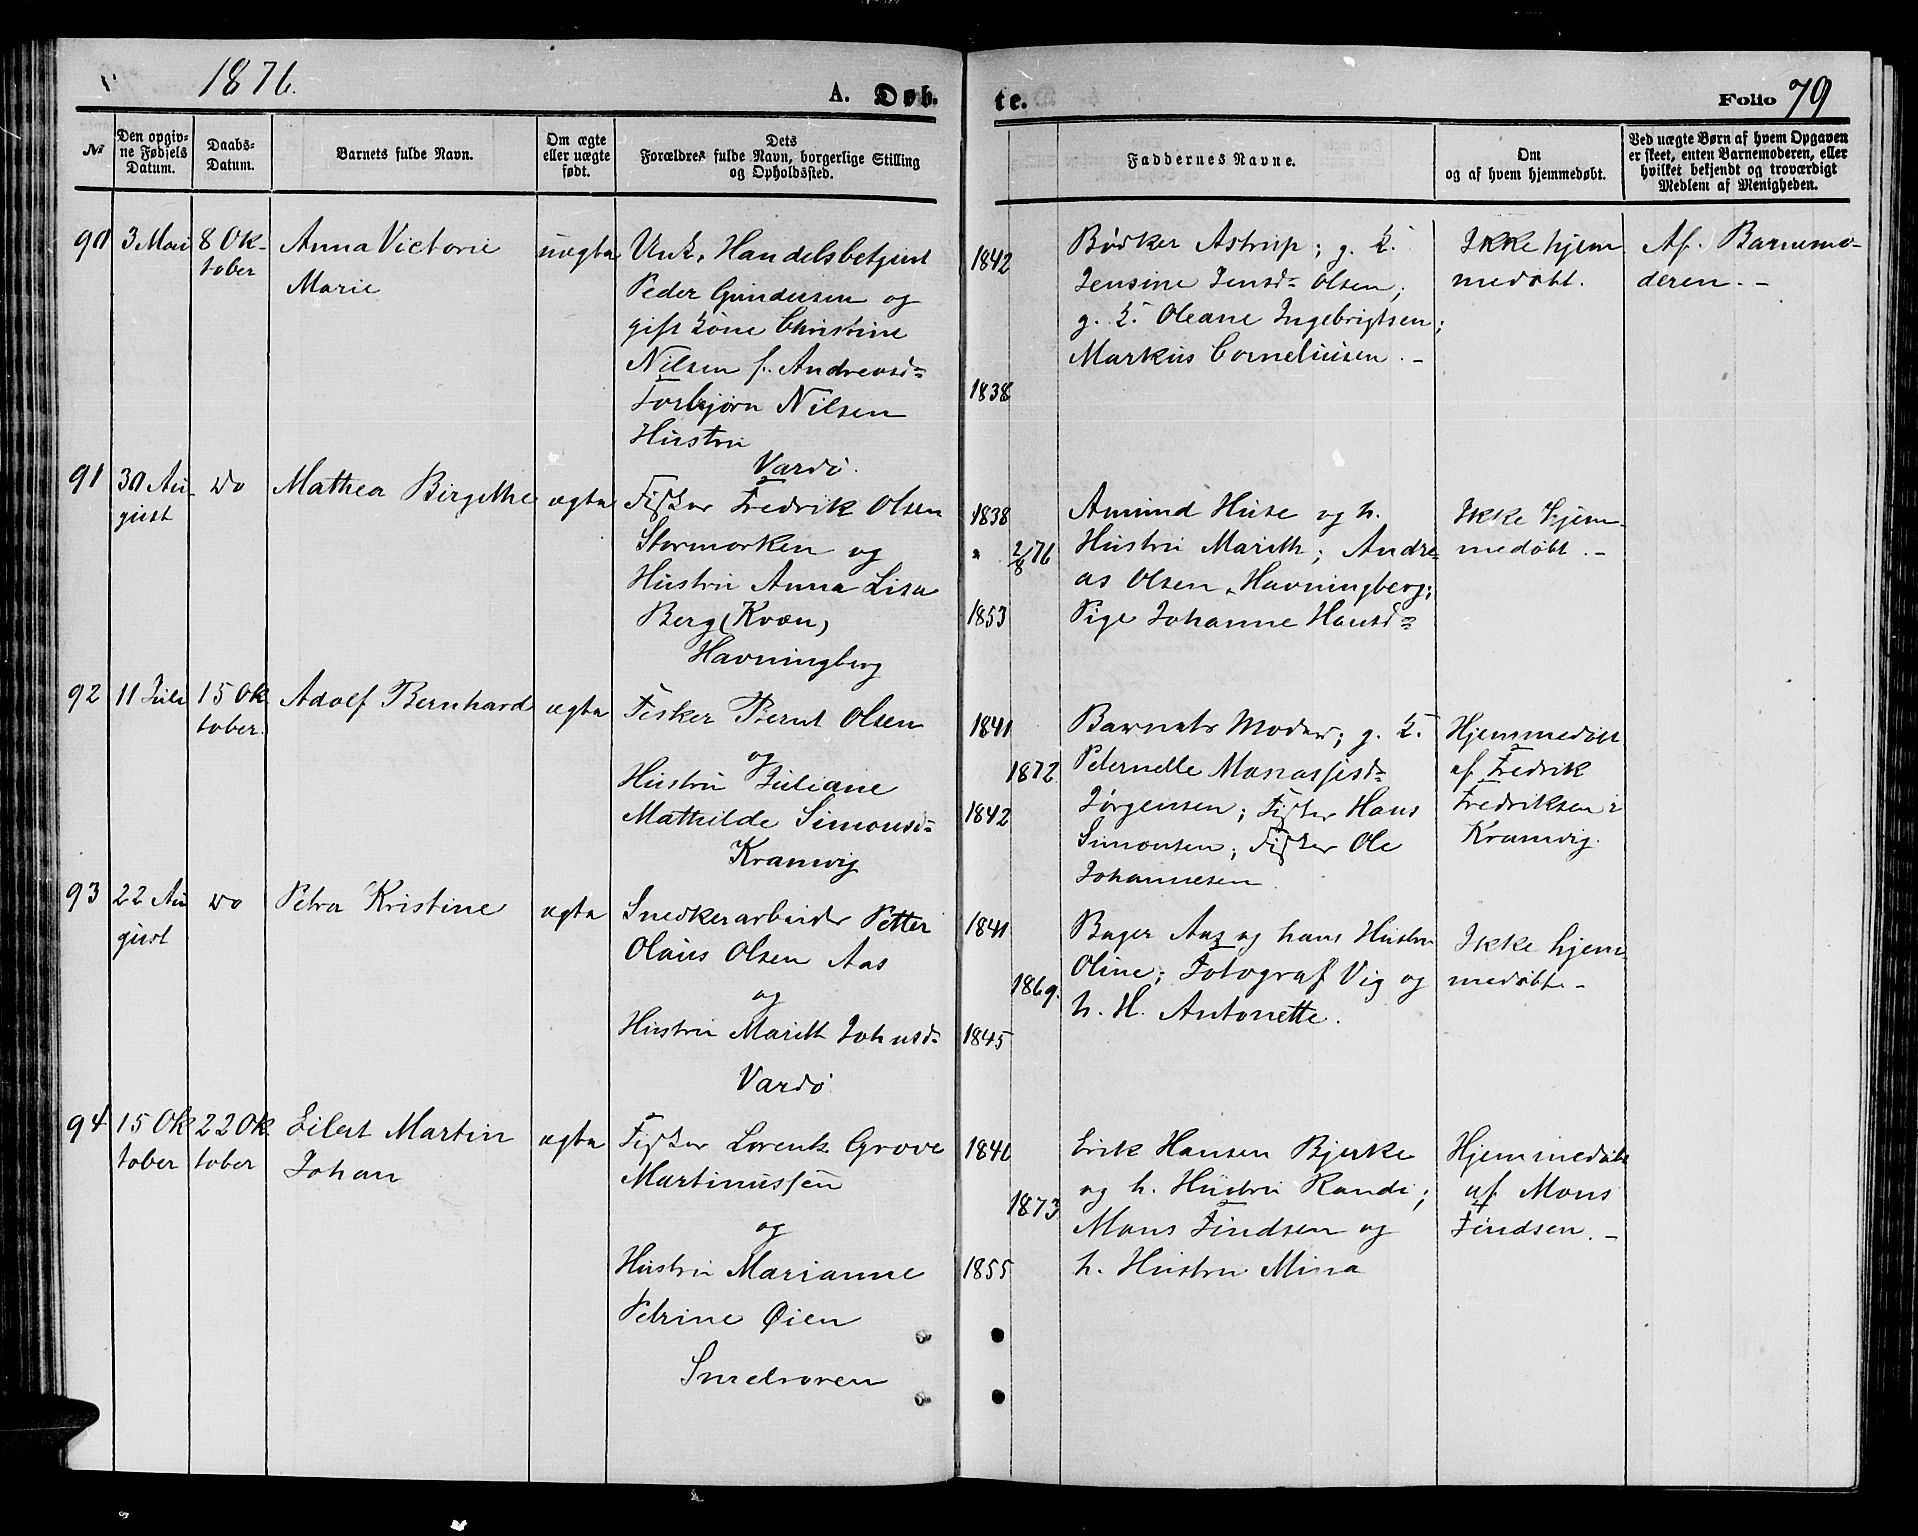 1876.
A. Døb-
te.
Folio 79
No
Den opgiv-
ne Fødsels
Datum.
Daabs-
Datum.
Barnets fulde Navn.
Om ægte
eller uægte
født.
Dets
Forældres fulde Navn, borgerlige Stilling
og Opholdssted.
Faddernes Navne.
Om
og af hvem hjemmedøbt.
Ved uægte Børn af hvem Opgaven
er skeet, enten Barnemoderen, eller
hvilket bekjendt og troværdigt
Medlem af Menigheden.
90 3 Mai 8 Ok-
tober
Anna Victorie
Marie
uægte
Unk. Handelsbetjent
Peder Gundersen og
gift Kone Christine
Nilsen f. Andreasd=
Torbjørn Nilsen
Hustru
Vardø.
1842
1838
Bødker Astrup; g. K.
Jensine Jensd= Olsen;
g. K. Oleane Ingebrigtsen;
Markus Corneliusen. –
Ikke hjem
medøbt.
Af Barnemo-
deren. –
91 30 Au-
gust
do
Mathea Birgithe
ægte
Fisker Fredrik Olsen
Stormorken og
Hustru Anna Lisa
Berg (Kvæn)
Havningberg
1838
2/8 76
1853
Amund Huse og h.
Hustru Marith; Andre-
as Olsen, Havningberg;
Pige Johanne Hansd=
Ikke hjem-
medøbt. –
92 11 Juli 15 Ok
tober.
Adolf Bernhard
ægte
Fisker Bernt Olsen
og
Hustru Juliane
Mathilde Simonsd=
Kramvig
1841
1872
1842
Barnets Moder; g. K.
Peternelle Manassesd=
Jørgensen; Fisker Hans
Simonsen; Fisker Ole
Johannesen.
Hjemmedøbt
af Fredrik
Fredriksen i
Kramvig.
93 22 Au
gust
do
Petra Kristine
ægte
Snedkerarbeider Petter
Olaus Olsen Aas
og
Hustru Marith Johnsd=
Vardø
1841
1869.
1845
Bager Aas og hans Hustru
Oline; Fotograf Vig og
h. H. Antonette.
Ikke hjem-
medøbt. –
94 15 Ok
tober
22 Ok
tober
Eilert Martin
Johan
ægte
Fisker Lorents Grove
Martinussen
og
Hustru Marianne
Petrine Øien
Smelroren
1840
1873
1855
Erik Hansen Bjerke
og h. Hustru Randi;
Mons Findsen og
h. Hustru Mina
Hjemmedøbt
af Mons
Findsen. –